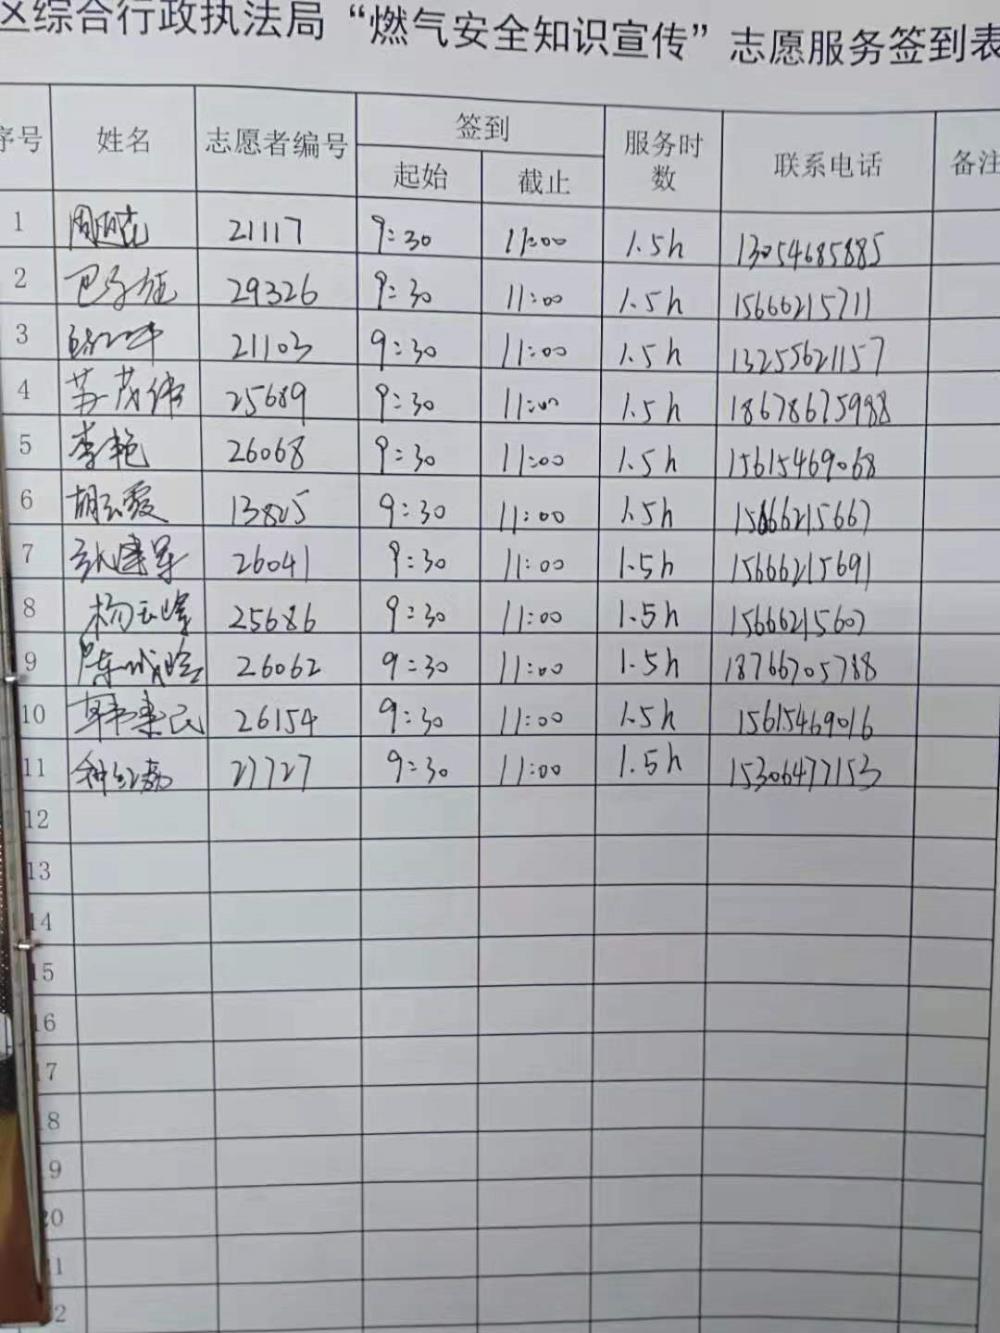 区综合行政执法局“燃气安全知识宣传”志愿服务签到表
序号 姓名 志愿者编号 签到 服务时数 联系电话 备注
起始 截止
1 21117 9:30 11:00 1.5h 13054685885
2 29326 9:30 11:00 1.5h 15666215711
3 21103 9:30 11:00 1.5h 13255621157
4 苏茂伟 25689 9:30 11:00 1.5h 18678675988
5 李艳 26068 9:30 11:00 1.5h 15615469068
6 胡玉爱 13805 9:30 11:00 1.5h 15666215667
7 张建军 26041 9:30 11:00 1.5h 15666215691
8 杨玉峰 25686 9:30 11:00 1.5h 15666215607
9 陈 26062 9:30 11:00 1.5h 18766705788
10 韩 民 26154 9:30 11:00 1.5h 15615469016
11 27727 9:30 11:00 1.5h 15306477153
12
13
14
15
16
17
18
19
20
21
22